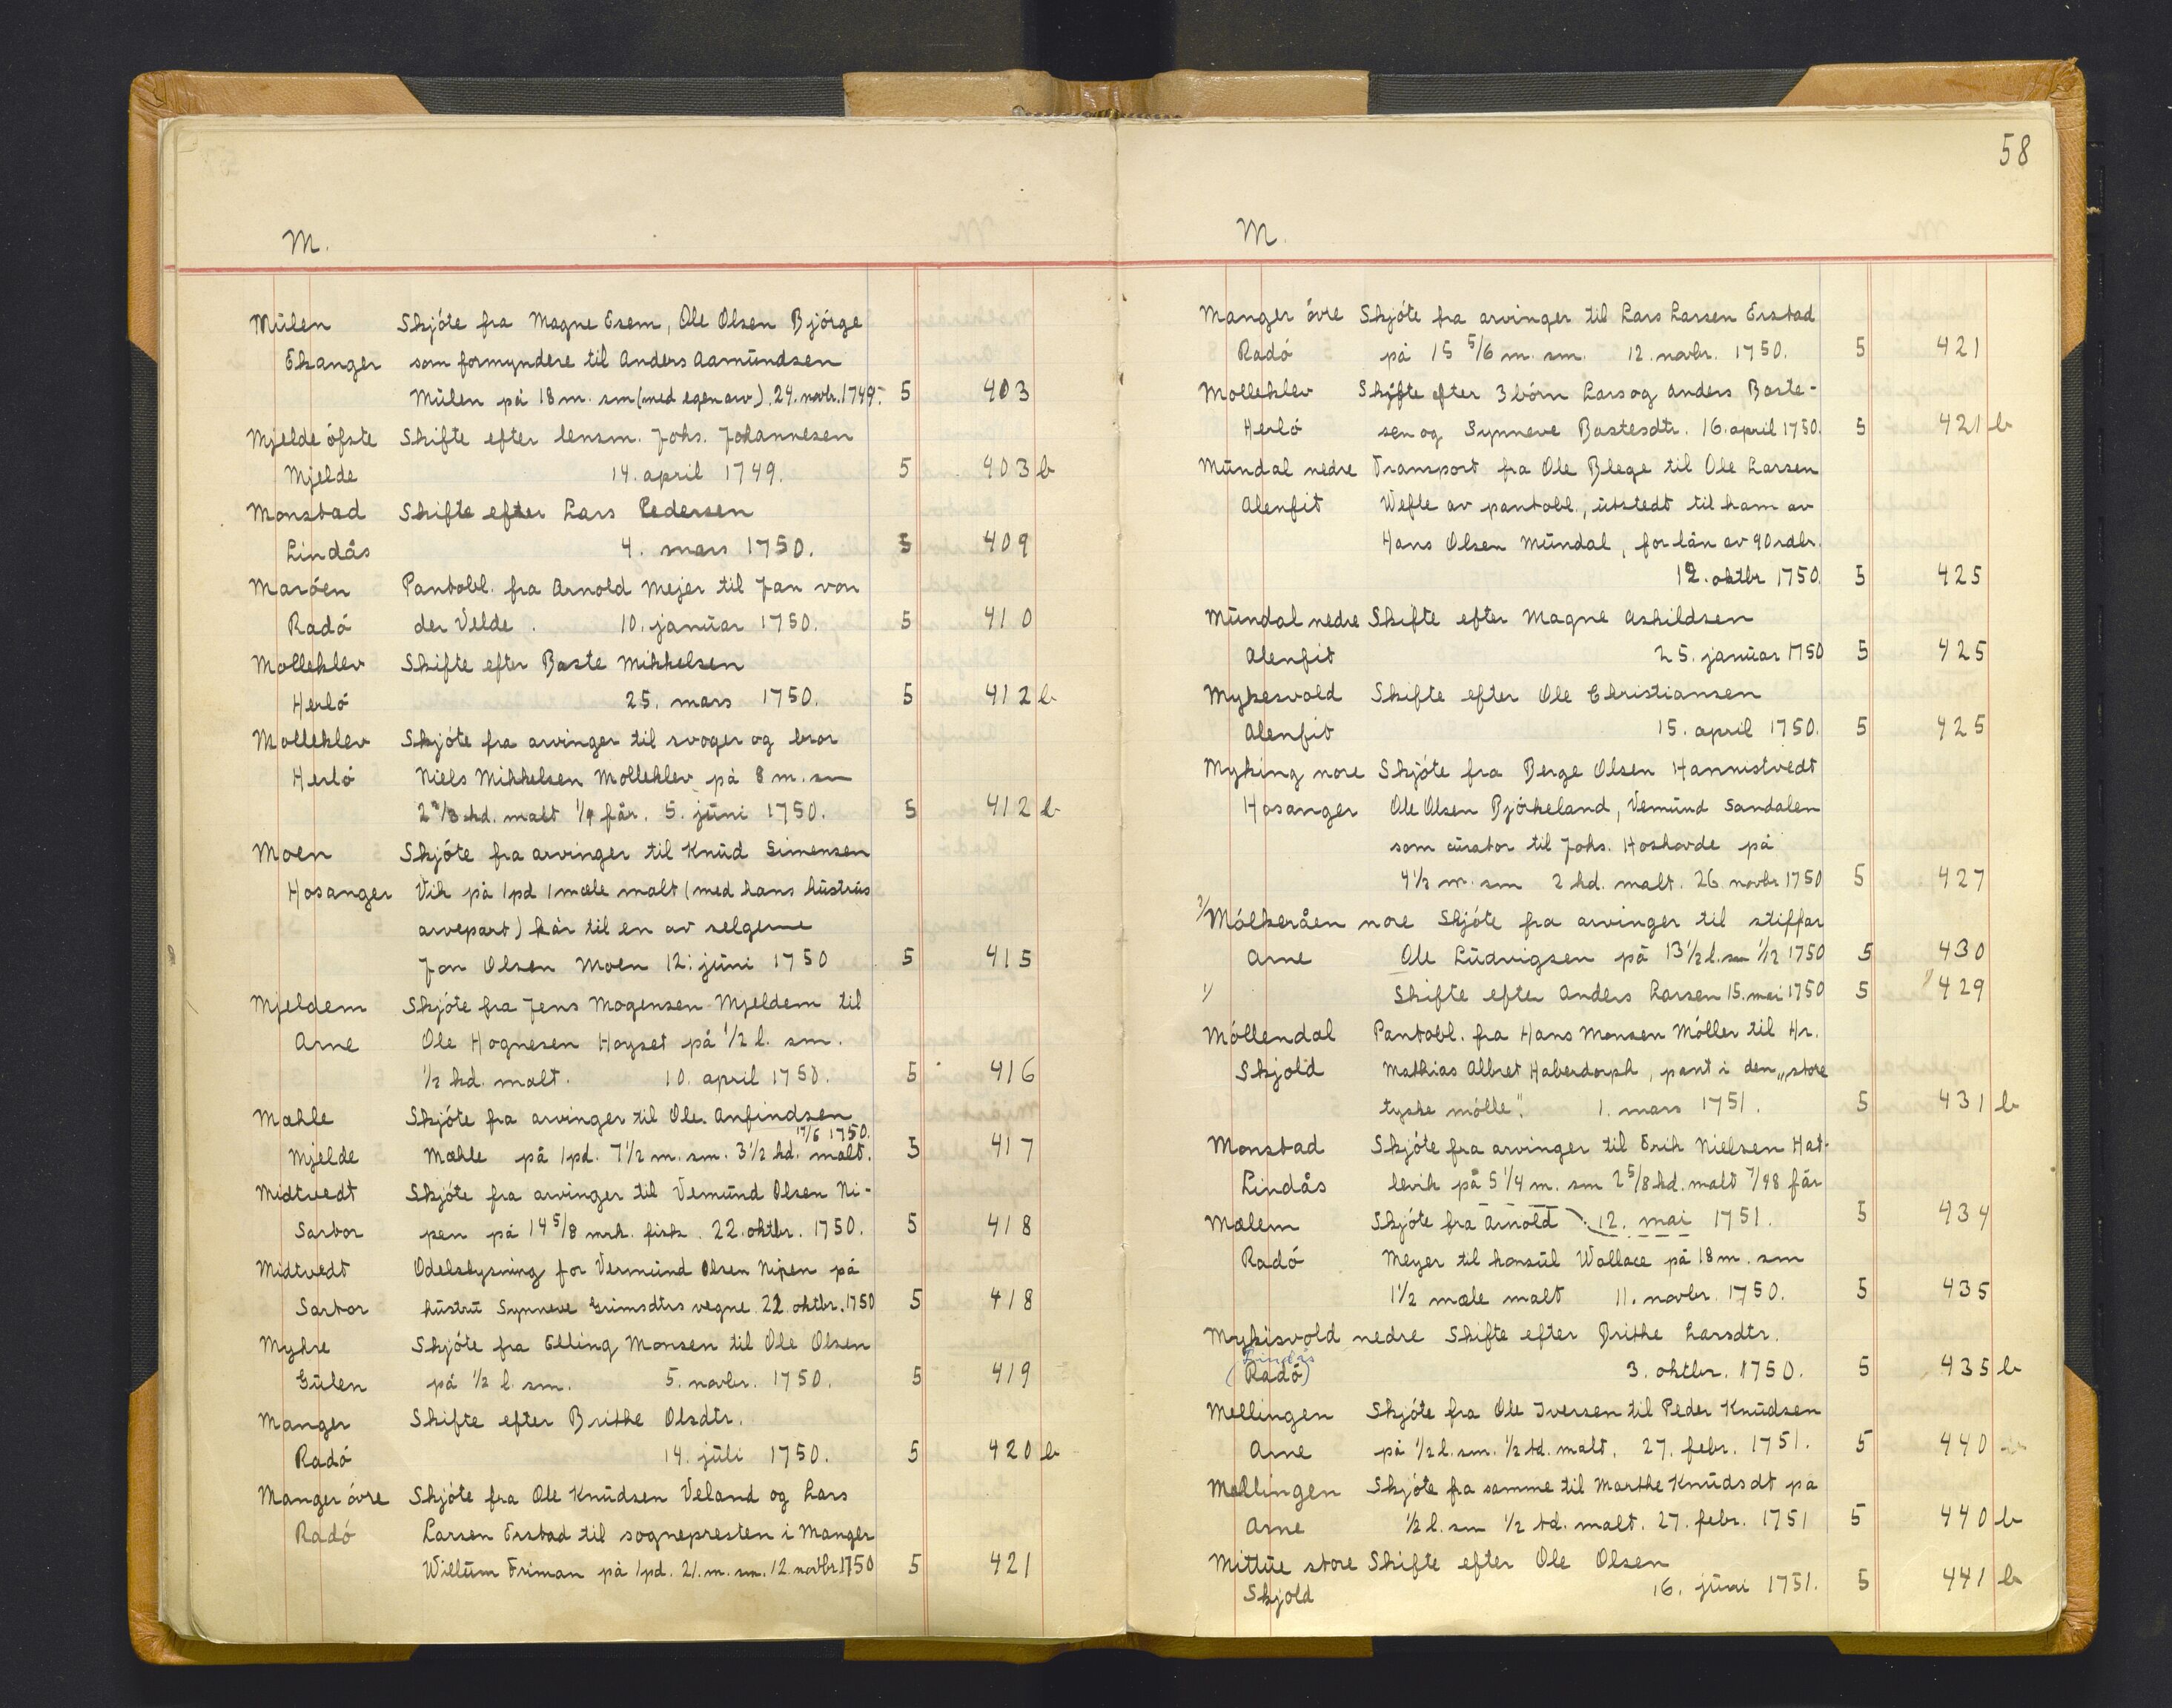 M.
Mülen Skjóte fra Magne Esem, Ole Olsen Bjórge
Ekanger som formyndere til Anders Aamündsen
Mülen på 18 m. sm (med egen arv). 24. novbr. 1749. 5 403
Mjelde öfste Skifte efter lensm. Johs. Johannesen
Mjelde 14. april 1749. 5 403 b
Monstad Skifte efter Lars Pedersen
Lindås 4. mars 1750. 5 409
Maróen Pantobl. fra Arnold Mejer til Jan von
Radó der Velde. 10. janüar 1750. 5 410
Molleklev Skifte efter Baste Mikkelsen
Herló 25. mars 1750. 5 412 b
Molleklev Skjóte fra arvinger til svoger og bror
Herló Niels Mikkelsen Molleklev på 8 m. sm
2 2/3 hd. malt 1/9 får. 5. jüni 1750. 5 412 b
Moen Skjóte fra arvinger til Knüd Simensen
Hosanger Vik på 1 pd 1 mæle malt (med hans hüstrüs
arvepart) kår til en av selgerne
Jon Olsen Moen 12. jüni 1750 5 415
Mjeldem Skjóte fra Jens Mogensen Mjeldem til
Arne Ole Hognesen Hoyset på 1/2 l. sm.
1/2 hd. malt. 10. april 1750. 5 416
Mæhle Skjóte fra arvinger til Ole Anfindsen
17/6 1750.
Mjelde Mæhle på 1 pd. 7 1/2 m. sm. 3 1/2 hd. malt. 5 417
Midtvedt Skjóte fra arvinger til Vemünd Olsen Ni-
Sartor pen på 14 5/8 mrk. fisk. 22. oktbr. 1750. 5 418
Midtvedt Odelslysning for Vermünd Olsen Nipen på
Sartor hüstrü Synneve Grimsdtrs vegne 22 oktbr. 1750 5 418
Mykre Skjóte fra Elling Monsen til Ole Olsen
Gülen på 1/2 l. sm. 5. novbr. 1750. 5 419
Manger Skifte efter Brithe Olsdtr.
Radó 14. jüli 1750. 5 420 b
Manger óvre Skjóte fra Ole Knüdsen Veland og Lars
Radó Larsen Erstad til sognepresten i Manger
Willüm Friman på 1 pd. 21. m. sm. 12. novbr. 1750 5 421
58
M.
Manger óvre Skjóte fra arvinger til Lars Larsen Erstad
Radó på 15 5/6 m. sm. 12. novbr. 1750. 5 421
Molleklev Skifte efter 3 börn Lars og Anders Baste-
Herló sen og Synneve Bastesdtr. 16. april 1750. 5 421 b
Mündal nedre Transport fra Ole Blege til Ole Larsen
Alenfit Wefle av pantobl., ütstedt til ham av
Hans Olsen Mündal, for lån av 90 rdlr.
12. oktbr 1750. 5 425
Mündal nedre Skifte efter Magne Askildsen
Alenfit 25. janüar 1750 5 425
Mykesvold Skifte efter Ole Christiansen
Alenfit 15. april 1750. 5 425
Myking nore Skjóte fra Berge Olsen Hannistvedt
Hosanger Ole Olsen Bjórkeland, Vemünd Sandalen
som cürator til Johs. Hoskovde på
4 1/2 m. sm 2 hd. malt. 26 novbr 1750 5 427
2/ Mólkeråen nore Skjóte fra arvinger til stiffar
Arne Ole Lüdvigsen på 13 1/2 l. sm 1/12 1750 5 430
1/ Skifte efter Anders Larsen 15. mai 1750 5 1/ 429
Móllendal Pantobl. fra Hans Monsen Móller til Hr.
Skjold Mathias Albret Haberdorph, pant i den „store
tyske mólle". 1. mars 1751. 5 431 b
Monstad Skjóte fra arvinger til Erik Nielsen Hat-
Lindås levik på 5 1/4 m. sm 2 5/8 hd. malt 7/48 får
12. mai 1751. 5 434
Mælem Skjóte fra Arnold
Radó Meyer til konsül Wallace på 18 m. sm
1 1/2 mæle malt 11. novbr. 1750. 5 435
Mykisvold nedre Skifte efter Brithe Larsdtr.
Lindås
(Radó) 3. oktbr. 1750. 5 435 b
Mellingen Skjóte fra Ole Iversen til Peder Knüdsen
Arne på 1/2 l. sm. 1/2 td. malt. 27. febr. 1751. 5 440
Mellingen Skjóte fra samme til Marthe Knüdsdt på
Arne 1/2 l. sm 1/2 td. malt. 27. febr. 1751 5 440 b
Mittüe store Skifte efter Ole Olsen
Skjold 16. jüni 1751. 5 441 b